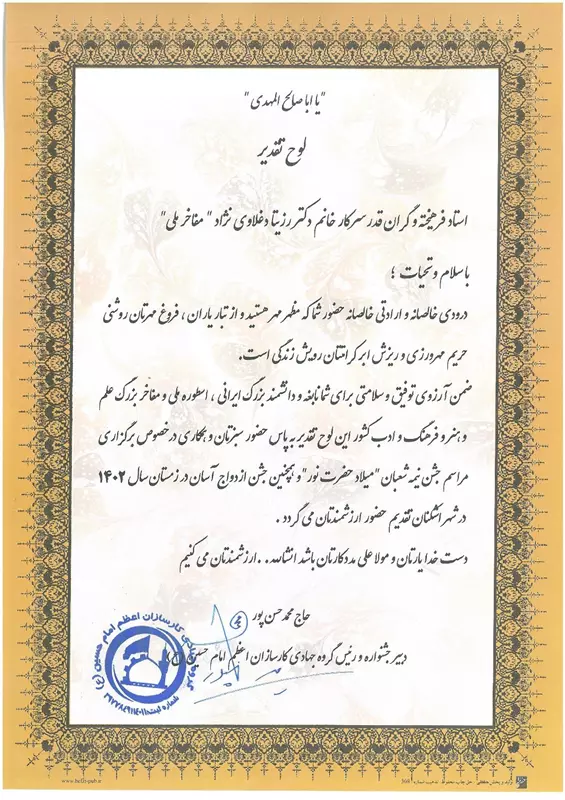 "یا ابا صالح المهدی"
لوح تقدیر
استاد فرهیخته و گران قدر سرکار خانم دکتر رزیتا دغلاوی نژاد "مفاخر ملی"
با سلام و تحیات ؛
درودی خالصانه و ارادتی خالصانه حضور شما که مظهر مهر هستید و از تبار یاران ، فروغ مهرتان روشنی
حریم مهرورزی و ریزش ابر کرامتتان رویش زندگی است.
ضمن آرزوی توفیق و سلامتی برای شما نابغه و دانشمند بزرگ ایرانی ، اسطوره ملی و مفاخر بزرگ علم
و هنر و فرهنگ و ادب کشور این لوح تقدیر به پاس حضور سبزتان و همکاری در خصوص برگزاری
مراسم جشن نیمه شعبان "میلاد حضرت نور" و همچنین جشن ازدواج آسان در زمستان سال ۱۴۰۲
در شهر اشکنان تقدیم حضور ارزشمندتان می گردد .
دست خدا یارتان و مولا علی مددکارتان باشد انشاالله...ارزشمندتان می کنیم
حاج محمد حسن پور
دبیر جشنواره و رئیس گروه جهادی کارسازان اعظم امام حسین (ع)
گروه جهادی کارسازان اعظم امام حسین (ع)